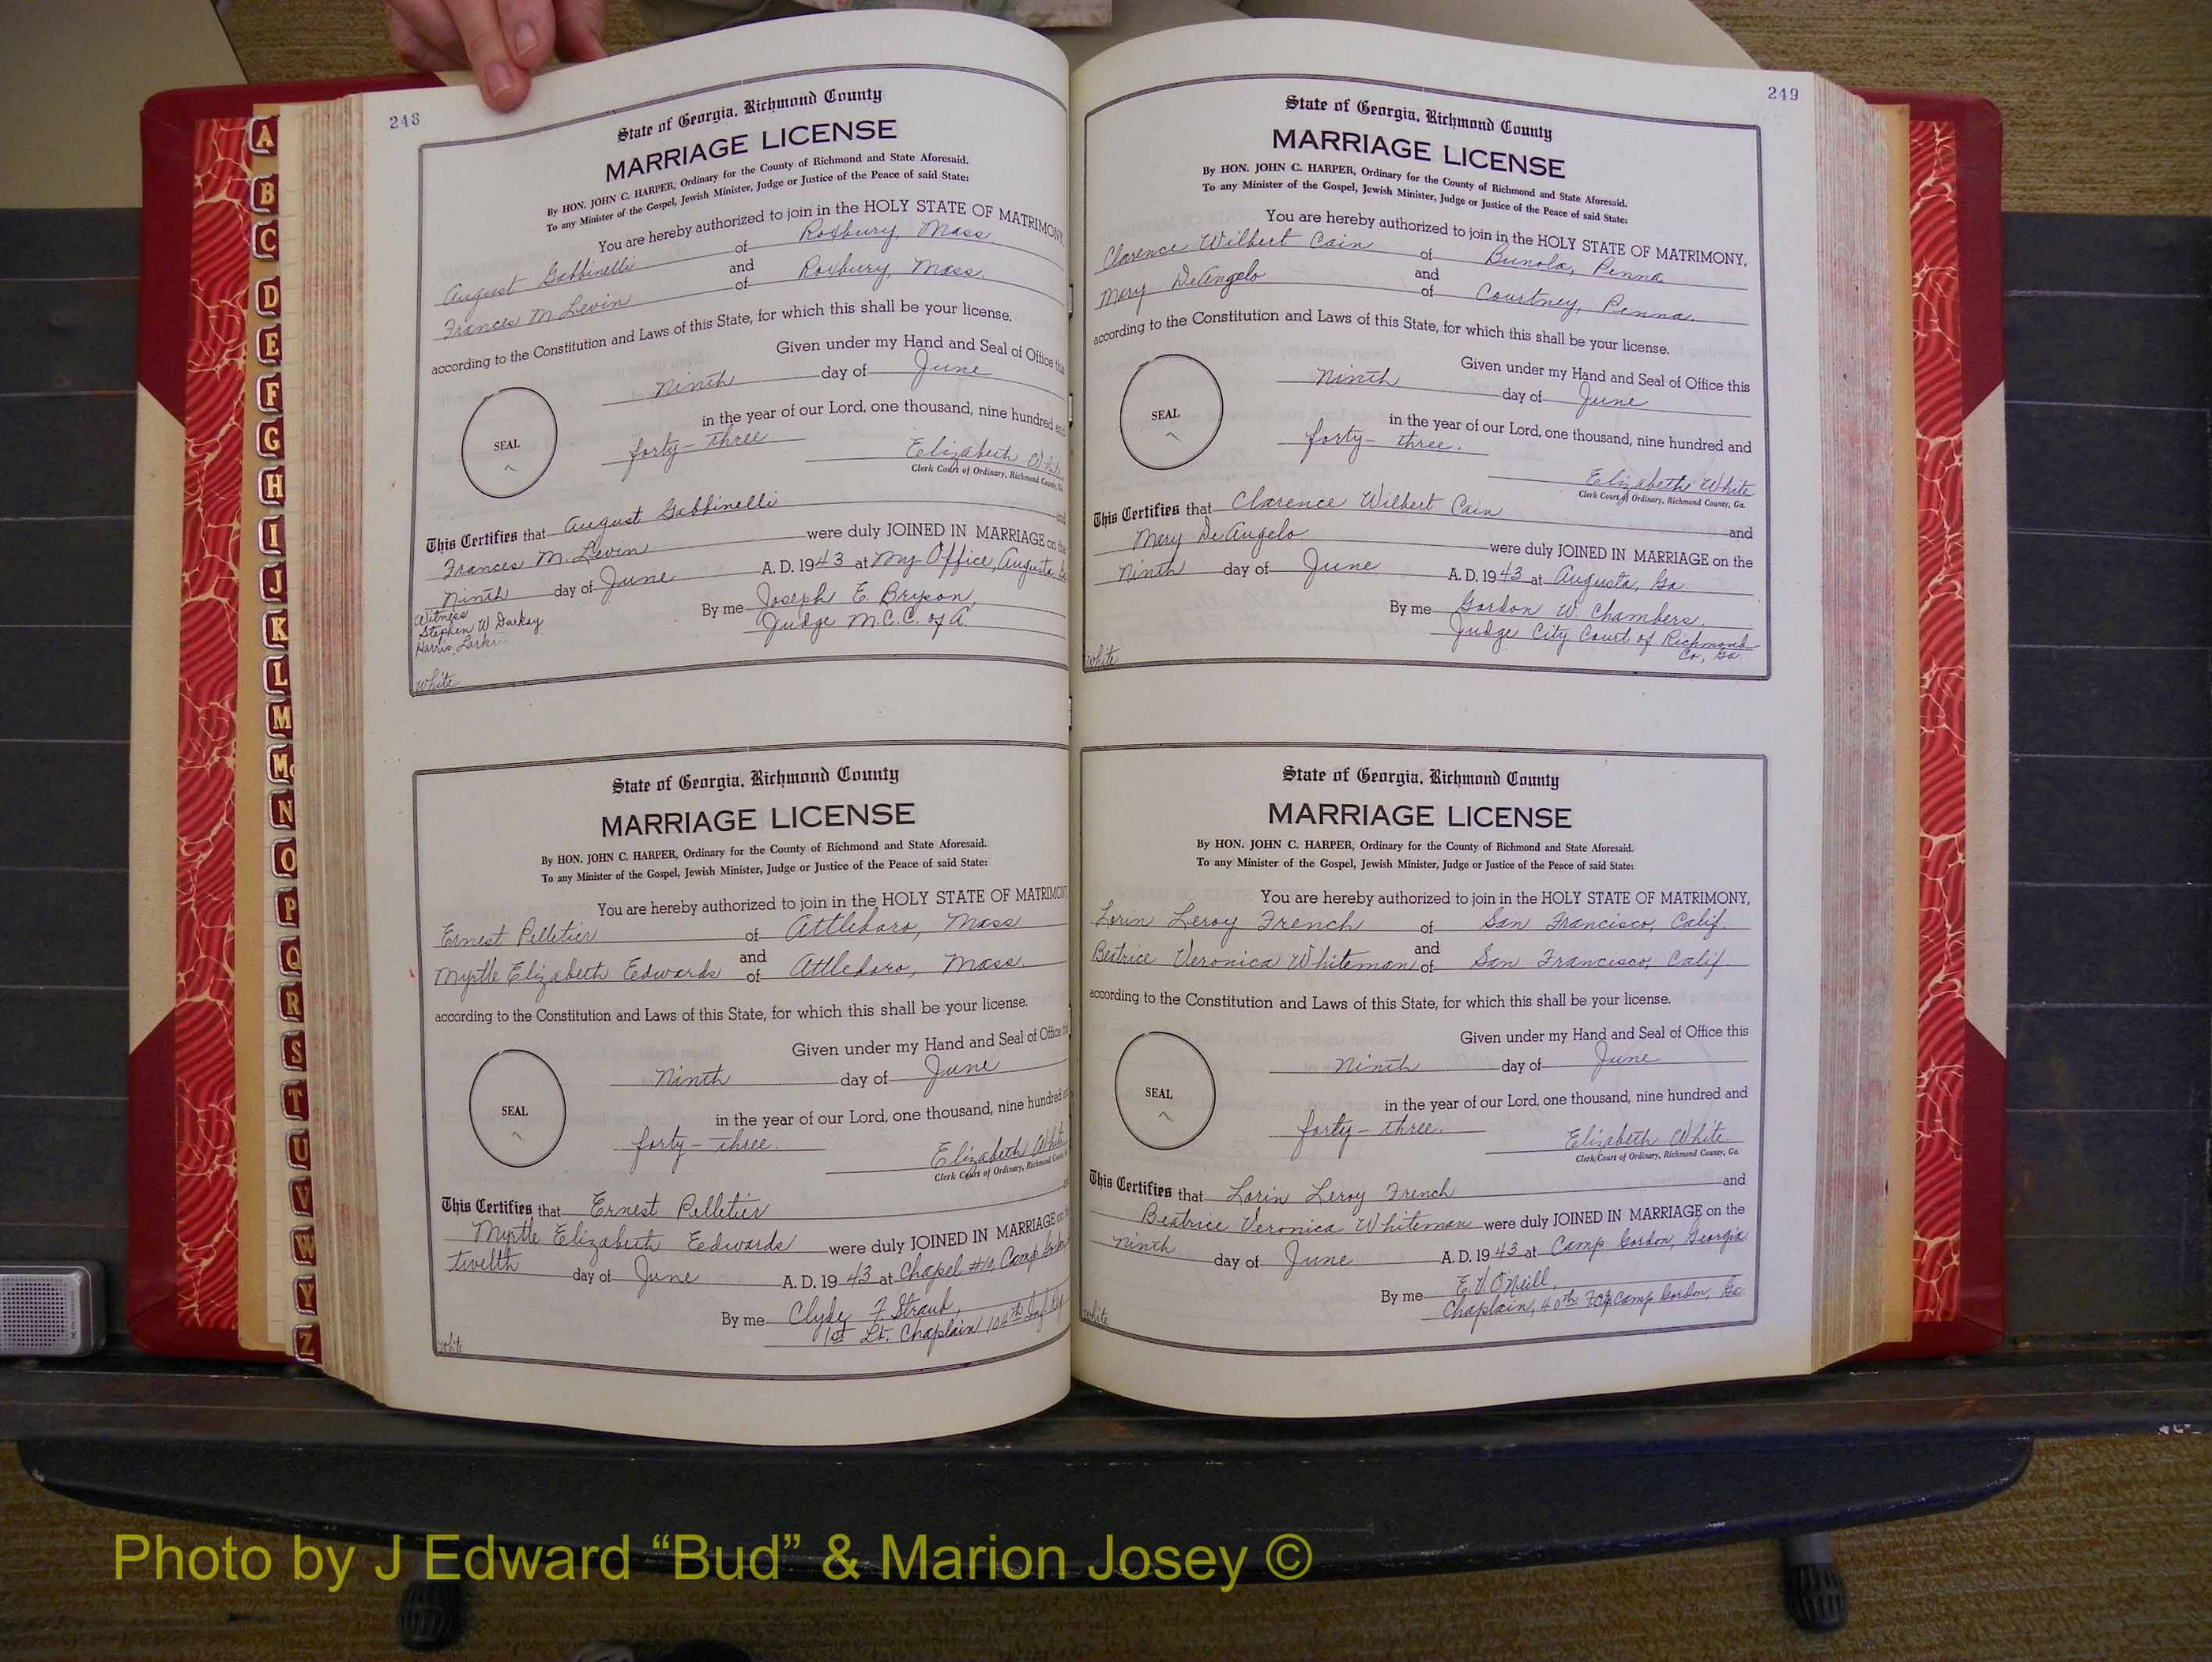 248
State of Georgia, Richmond County
MARRIAGE LICENSE
By HON. JOHN C. HARPER, Ordinary for the County of Richmond and State Aforesaid.
To any Minister of the Gospel, Jewish Minister, Judge or Justice of the Peace of said State:
You are hereby authorized to join in the HOLY STATE OF MATRIMONY,
August Gabbinelli of Roxbury, Mass.
and
Frances M. Levin of Roxbury, Mass.
according to the Constitution and Laws of this State, for which this shall be your license.
Given under my Hand and Seal of Office this
Ninth day of June
in the year of our Lord, one thousand, nine hundred and
SEAL
forty-three. Elizabeth White
Clerk Court of Ordinary, Richmond County, Ga.
This Certifies that August Gabbinelli and
Frances M. Levin were duly JOINED IN MARRIAGE on the
Ninth day of June A. D. 1943 at My Office, Augusta,
By me Joseph E. Bryson,
Judge M.C.C. of A.
Witness
Stephen W Darkay
Harris
White
State of Georgia, Richmond County
MARRIAGE LICENSE
By HON. JOHN C. HARPER, Ordinary for the County of Richmond and State Aforesaid.
To any Minister of the Gospel, Jewish Minister, Judge or Justice of the Peace of said State:
You are hereby authorized to join in the HOLY STATE OF MATRIMONY
Ernest Pelletier of Attleboro, Mass.
and
Myrtle Elizabeth Edwards of Attleboro, Mass.
according to the Constitution and Laws of this State, for which this shall be your license.
Given under my Hand and Seal of Office
Ninth day of June
in the year of our Lord, one thousand, nine hundred
SEAL
forty-three. Elizabeth White
Clerk Court of Ordinary, Richmond County
This Certifies that Ernest Pelletier
Myrtle Elizabeth Eedwards were duly JOINED IN MARRIAGE on
twelth day of June A. D. 1943 at Chapel #10, Camp Gordon
By me Clyde F. Straub,
1st Lt. Chaplain 104th
White
249
State of Georgia, Richmond County
MARRIAGE LICENSE
By HON. JOHN C. HARPER, Ordinary for the County of Richmond and State Aforesaid.
To any Minister of the Gospel, Jewish Minister, Judge or Justice of the Peace of said State:
You are hereby authorized to join in the HOLY STATE OF MATRIMONY,
Clarence Wilbert Cain of Bunola, Penna.
and
Mary DeAngelo of Courtney, Penna.
according to the Constitution and Laws of this State, for which this shall be your license.
Given under my Hand and Seal of Office this
Ninth day of June
in the year of our Lord, one thousand, nine hundred and
SEAL
forty-three. Elizabeth White
Clerk Court of Ordinary, Richmond County, Ga.
This Certifies that Clarence Wilbert Cain
and
Mary DeAngelo were duly JOINED IN MARRIAGE on the
Ninth day of June A. D. 1943 at Augusta, Ga.
By me Gordon W. Chambers,
Judge City Court of Richmond
Co, Ga.
White
State of Georgia, Richmond County
MARRIAGE LICENSE
By HON. JOHN C. HARPER, Ordinary for the County of Richmond and State Aforesaid.
To any Minister of the Gospel, Jewish Minister, Judge or Justice of the Peace of said State:
You are hereby authorized to join in the HOLY STATE OF MATRIMONY,
Lorin Leroy French of San Francisco, Calif.
and
Beatrice Veronica Whiteman of San Francisco, Calif.
according to the Constitution and Laws of this State, for which this shall be your license.
Given under my Hand and Seal of Office this
Ninth day of June
in the year of our Lord, one thousand, nine hundred and
SEAL
forty-three. Elizabeth White
Clerk Court of Ordinary, Richmond County, Ga.
This Certifies that Lorin Leroy French and
Beatrice Veronica Whiteman were duly JOINED IN MARRIAGE on the
ninth day of June A. D. 1943 at Camp Gordon, Georgia
By me E. V. O'Neill,
Chaplain, 40th Camp Gordon, Ga
White
A
B
C
D
E
F
G
H
I
J
K
L
M
Mc
N
O
P
Q
R
S
T
U
V
W
Y
Z
Photo by J Edward “Bud” & Marion Josey ©